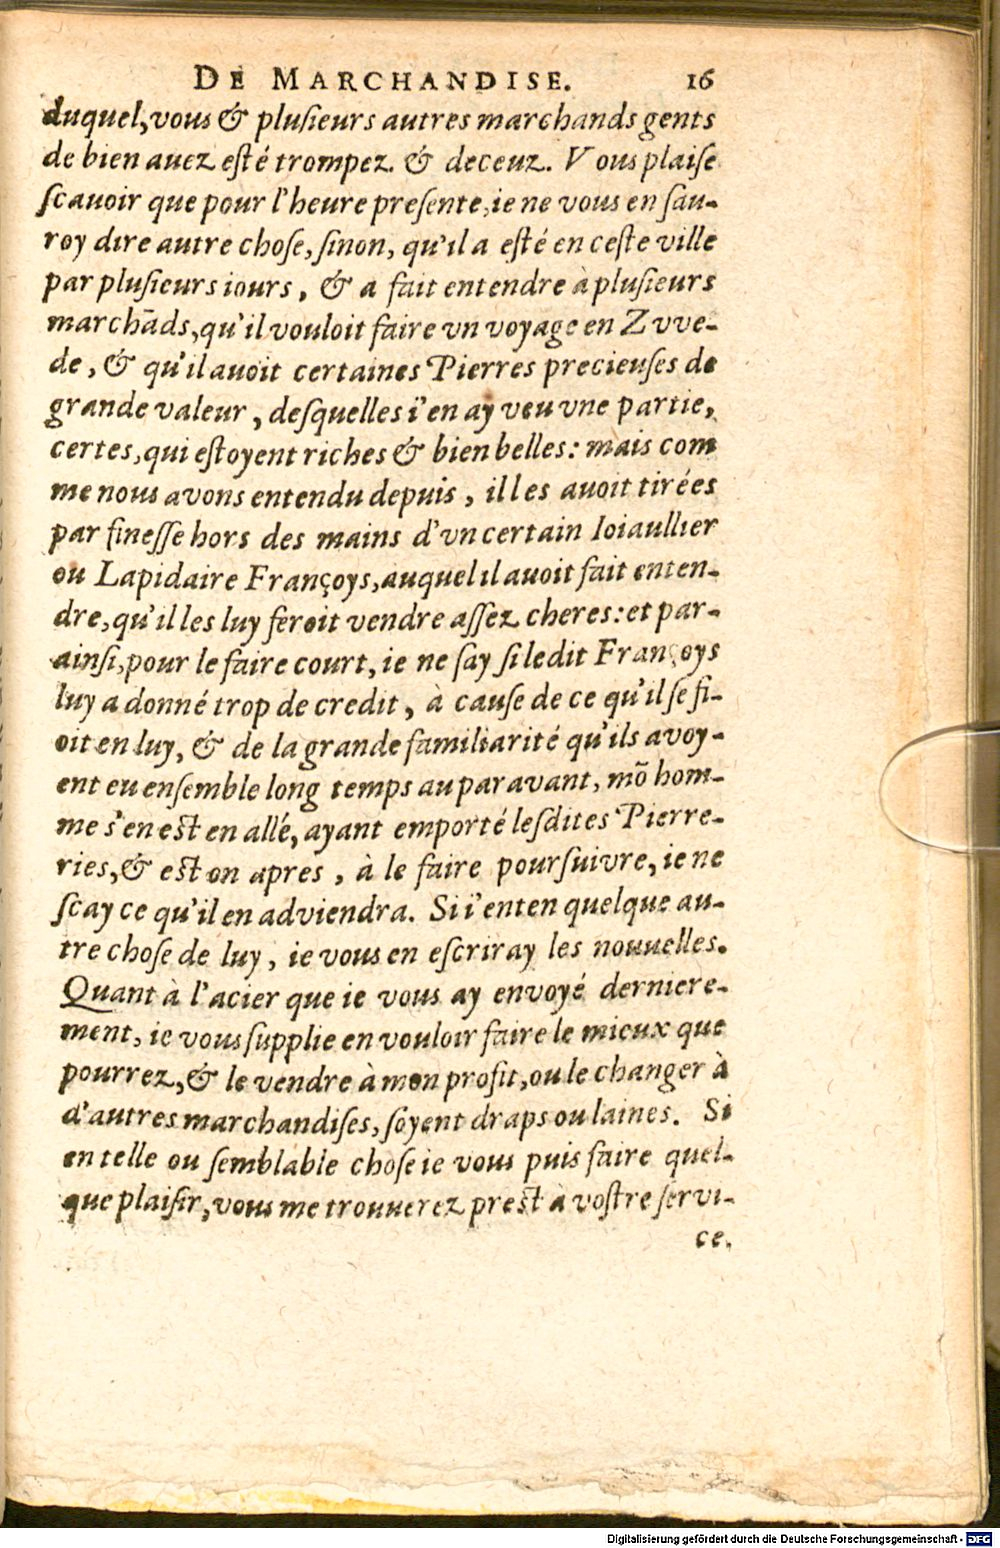 DE MARCHANDISE. 16
duquel, vous & plusieurs autres marchands gents
de bien auez esté trompez & deceuz. Vous plaise
scauoir que pour l'heure presente, ie ne vous en sau-
roy dire autre chose, sinon, qu'il a esté en ceste ville
par plusieurs iours, & a fait entendre à plusieurs
marchāds, qu'il vouloit faire vn voyage en Zvve-
de, & qu'il auoit certaines Pierres precieuses de
grande valeur, desquelles i'en ay veu vne partie,
certes, qui estoyent riches & bien belles: mais com
me nous avons entendu depuis, il les auoit tirées
par finesse hors des mains d'vn certain Ioiaullier
ou Lapidaire Françoys, auquel il auoit fait enten-
dre, qu'il les luy feroit vendre assez cheres: et par-
ainsi, pour le faire court, ie ne say si ledit Françoys
luy a donné trop de credit, à cause de ce qu'il se fi-
oit en luy, & de la grande familiarité qu'ils avoy-
ent eu ensemble long temps au paravant, mō hom-
me s'en est en allé, ayant emporté lesdites Pierre-
ries, & est on apres, à le faire poursuivre, ie ne
scay ce qu'il en adviendra. Si i'enten quelque au-
tre chose de luy, ie vous en escriray les nouuelles.
Quant à l'acier que ie vous ay envoyé derniere-
ment, ie vous supplie en vouloir faire le mieux que
pourrez, & le vendre à mon profit, ou le changer à
d'autres marchandises, soyent draps ou laines. Si
en telle ou semblable chose ie vous puis faire quel-
que plaisir, vous me trouuerez prest à vostre servi-
ce.
Digitalisierung gefördert durch die Deutsche Forschungsgemeinschaft - DFG